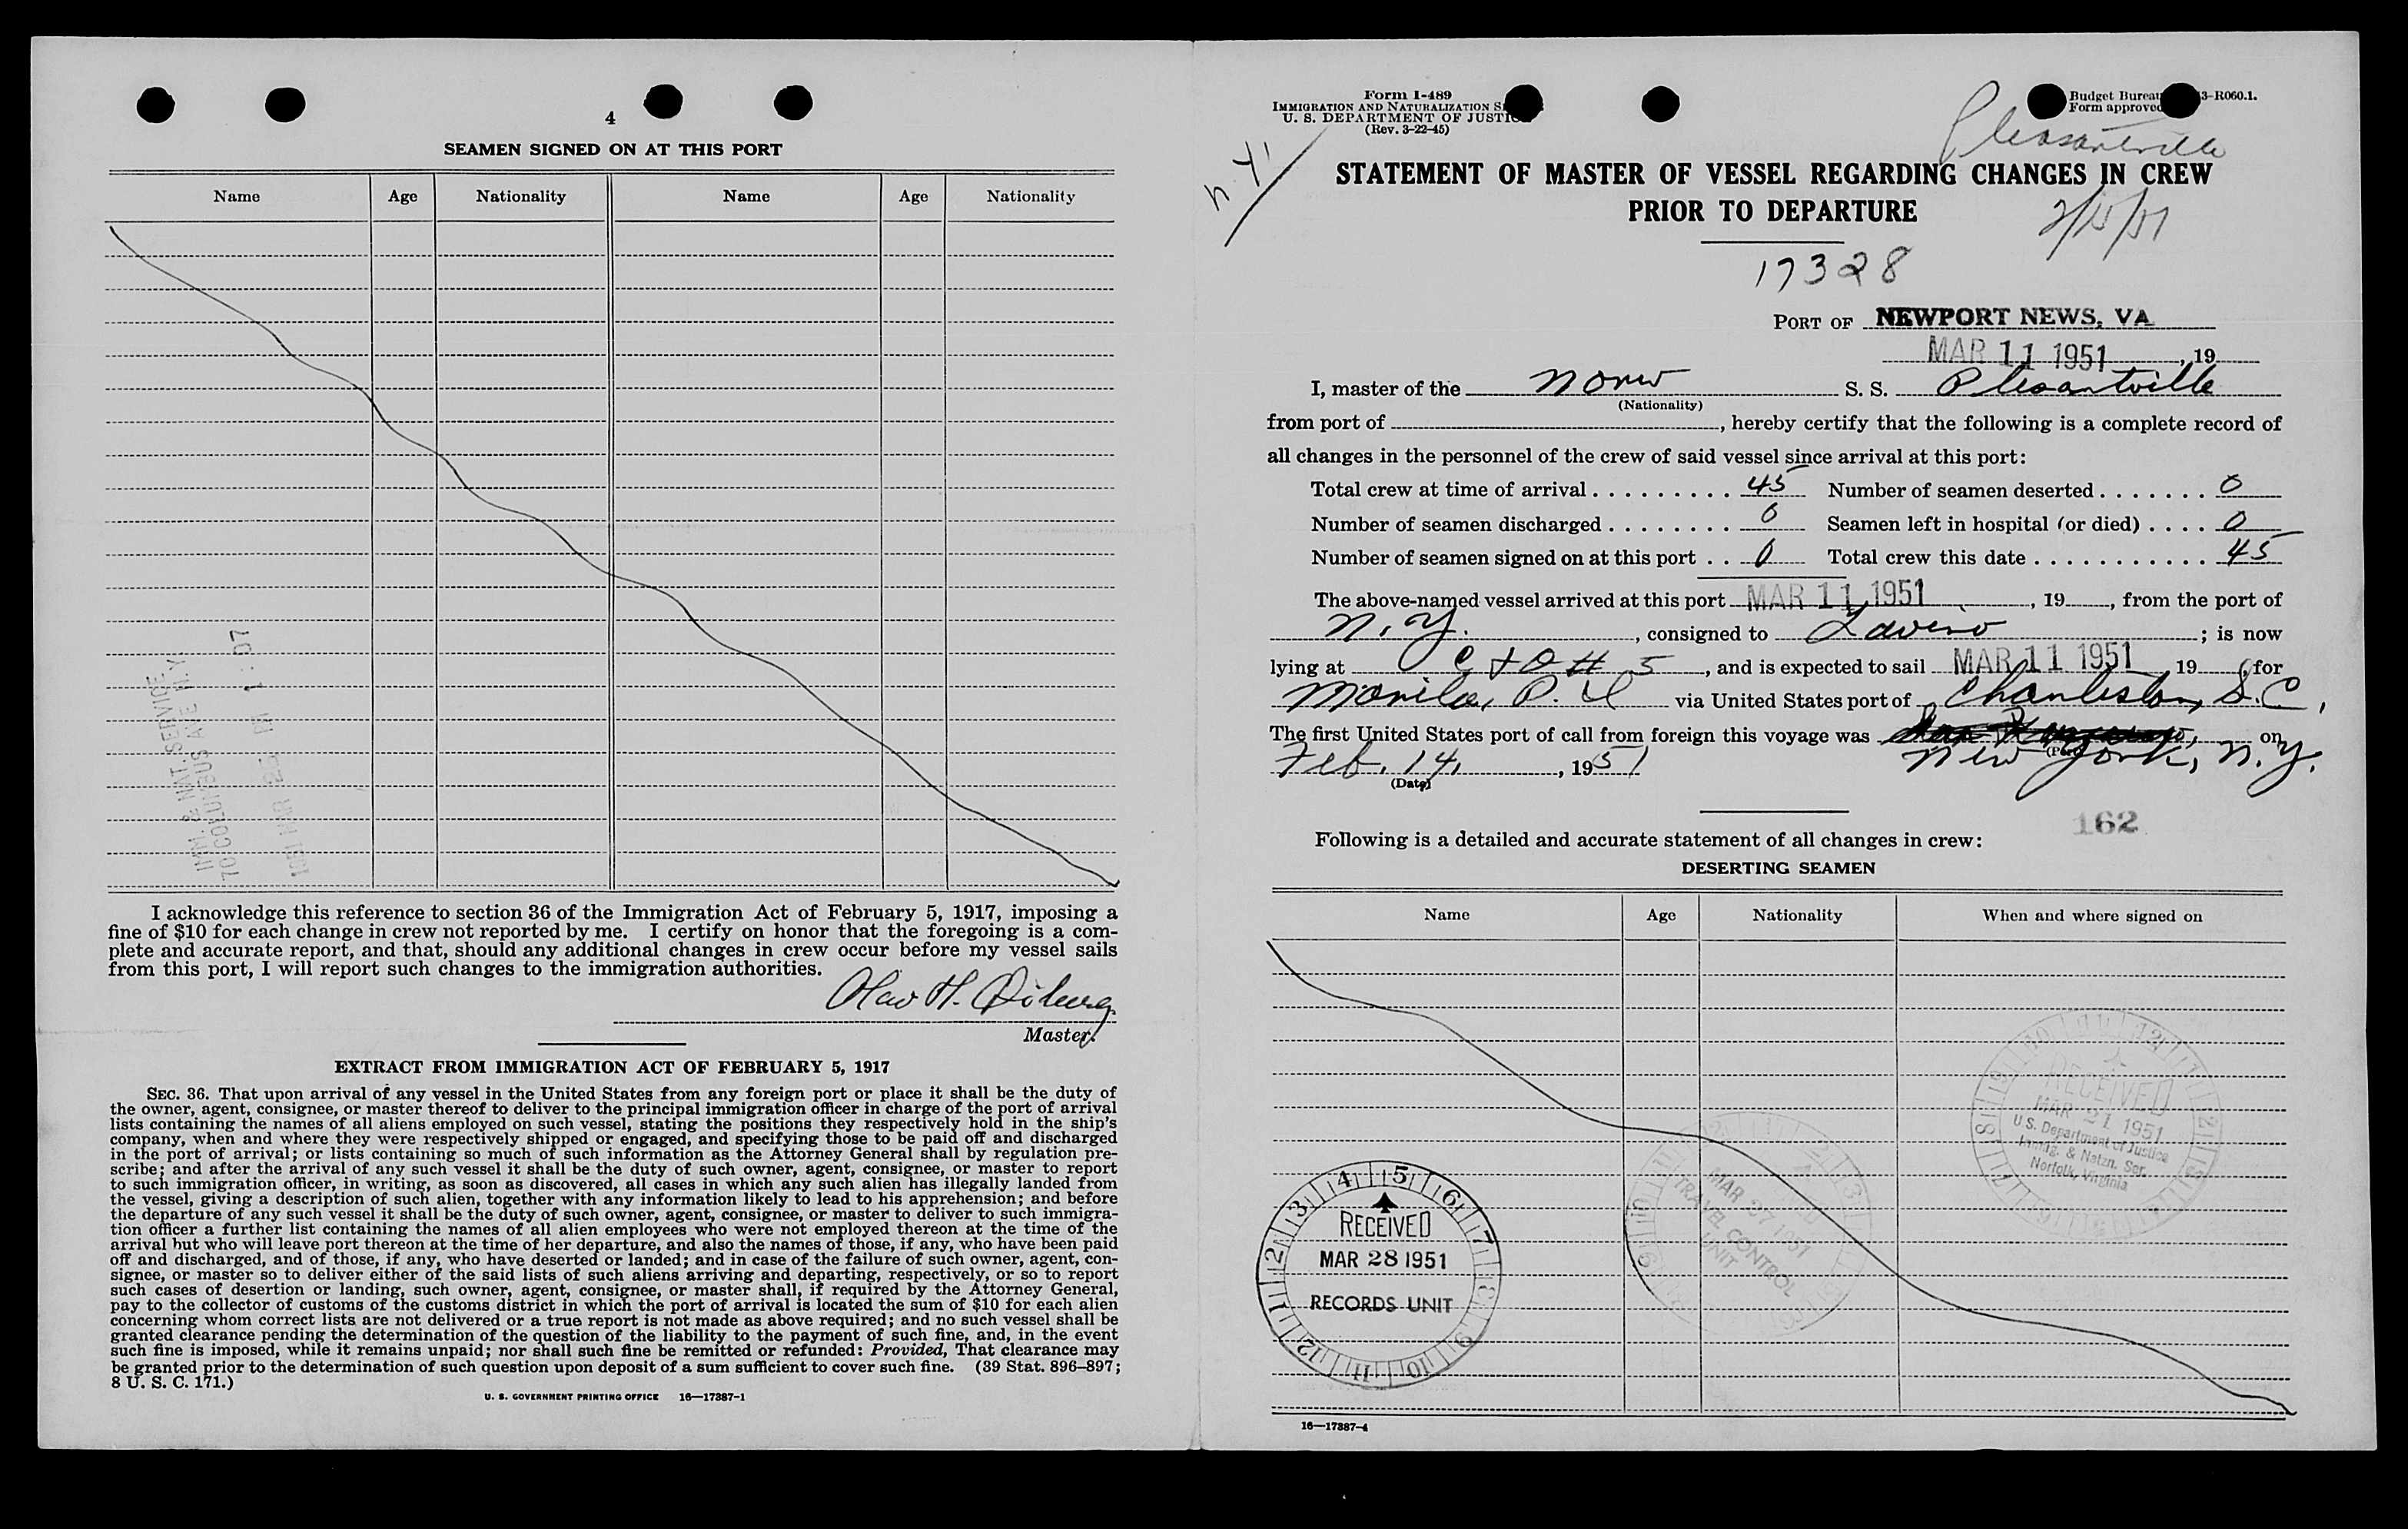 4
SEAMEN SIGNED ON AT THIS PORT
Name Age Nationality Name Age Nationality
1951 MAR
70 COLUMBUS AVE N.Y.
IMM. & NAT. SERVICE
I acknowledge this reference to section 36 of the Immigration Act of February 5, 1917, imposing a
fine of $10 for each change in crew not reported by me. I certify on honor that the foregoing is a com-
plete and accurate report, and that, should any additional changes in crew occur before my vessel sails
from this port, I will report such changes to the immigration authorities.
Olav H.
Master.
EXTRACT FROM IMMIGRATION ACT OF FEBRUARY 5, 1917
SEC. 36. That upon arrival of any vessel in the United States from any foreign port or place it shall be the duty of
the owner, agent, consignee, or master thereof to deliver to the principal immigration officer in charge of the port of arrival
lists containing the names of all aliens employed on such vessel, stating the positions they respectively hold in the ship's
company, when and where they were respectively shipped or engaged, and specifying those to be paid off and discharged
in the port of arrival; or lists containing so much of such information as the Attorney General shall by regulation pre-
scribe; and after the arrival of any such vessel it shall be the duty of such owner, agent, consignee, or master to report
to such immigration officer, in writing, as soon as discovered, all cases in which any such alien has illegally landed from
the vessel, giving a description of such alien, together with any information likely to lead to his apprehension; and before
the departure of any such vessel it shall be the duty of such owner, agent, consignee, or master to deliver to such immigra-
tion officer a further list containing the names of all alien employees who were not employed thereon at the time of the
arrival but who will leave port thereon at the time of her departure, and also the names of those, if any, who have been paid
off and discharged, and of those, if any, who have deserted or landed; and in case of the failure of such owner, agent, con-
signee, or master so to deliver either of the said lists of such aliens arriving and departing, respectively, or so to report
such cases of desertion or landing, such owner, agent, consignee, or master shall, if required by the Attorney General,
pay to the collector of customs of the customs district in which the port of arrival is located the sum of $10 for each alien
concerning whom correct lists are not delivered or a true report is not made as above required; and no such vessel shall be
granted clearance pending the determination of the question of the liability to the payment of such fine, and, in the event
such fine is imposed, while it remains unpaid; nor shall such fine be remitted or refunded: Provided, That clearance may
be granted prior to the determination of such question upon deposit of a sum sufficient to cover such fine. (39 Stat. 896–897;
8 U. S. C. 171.)
U. S. GOVERNMENT PRINTING OFFICE 16—17387-1
Form I-489
IMMIGRATION AND NATURALIZATION
U. S. DEPARTMENT OF JUSTICE
(Rev. 3-22-45)
Budget Bureau 3-R060.1.
Form approved
N.Y.
Pleasantville
STATEMENT OF MASTER OF VESSEL REGARDING CHANGES IN CREW
PRIOR TO DEPARTURE
2/15/51
17328
PORT OF NEWPORT NEWS, VA
MAR 11 1951, 19
I, master of the Norw S. S. Plesantville
(Nationality)
from port of , hereby certify that the following is a complete record of
all changes in the personnel of the crew of said vessel since arrival at this port:
Total crew at time of arrival 45 Number of seamen deserted 0
Number of seamen discharged 0 Seamen left in hospital (or died) 0
Number of seamen signed on at this port 0 Total crew this date 45
The above-named vessel arrived at this port MAR 11 1951, 19, from the port of
N.Y., consigned to Lavino; is now
lying at C & O # 5, and is expected to sail MAR 11 1951 19, for
Manila, P. I. via United States port of Charleston, S.C.,
The first United States port of call from foreign this voyage was on
New York, N.Y.
(Port)
Feb. 14, 1951
(Date)
162
Following is a detailed and accurate statement of all changes in crew:
DESERTING SEAMEN
Name Age Nationality When and where signed on
RECEIVED
MAR 21 1951
U.S. Department of Justice
Immig. & Natzn. Ser.
Norfolk, Virginia
MAR 27 1951
TRAVEL CONTROL
UNIT
RECEIVED
MAR 28 1951
RECORDS UNIT
1 2 3 4 5 6 7 8 9 10 11 12
16—17387-4